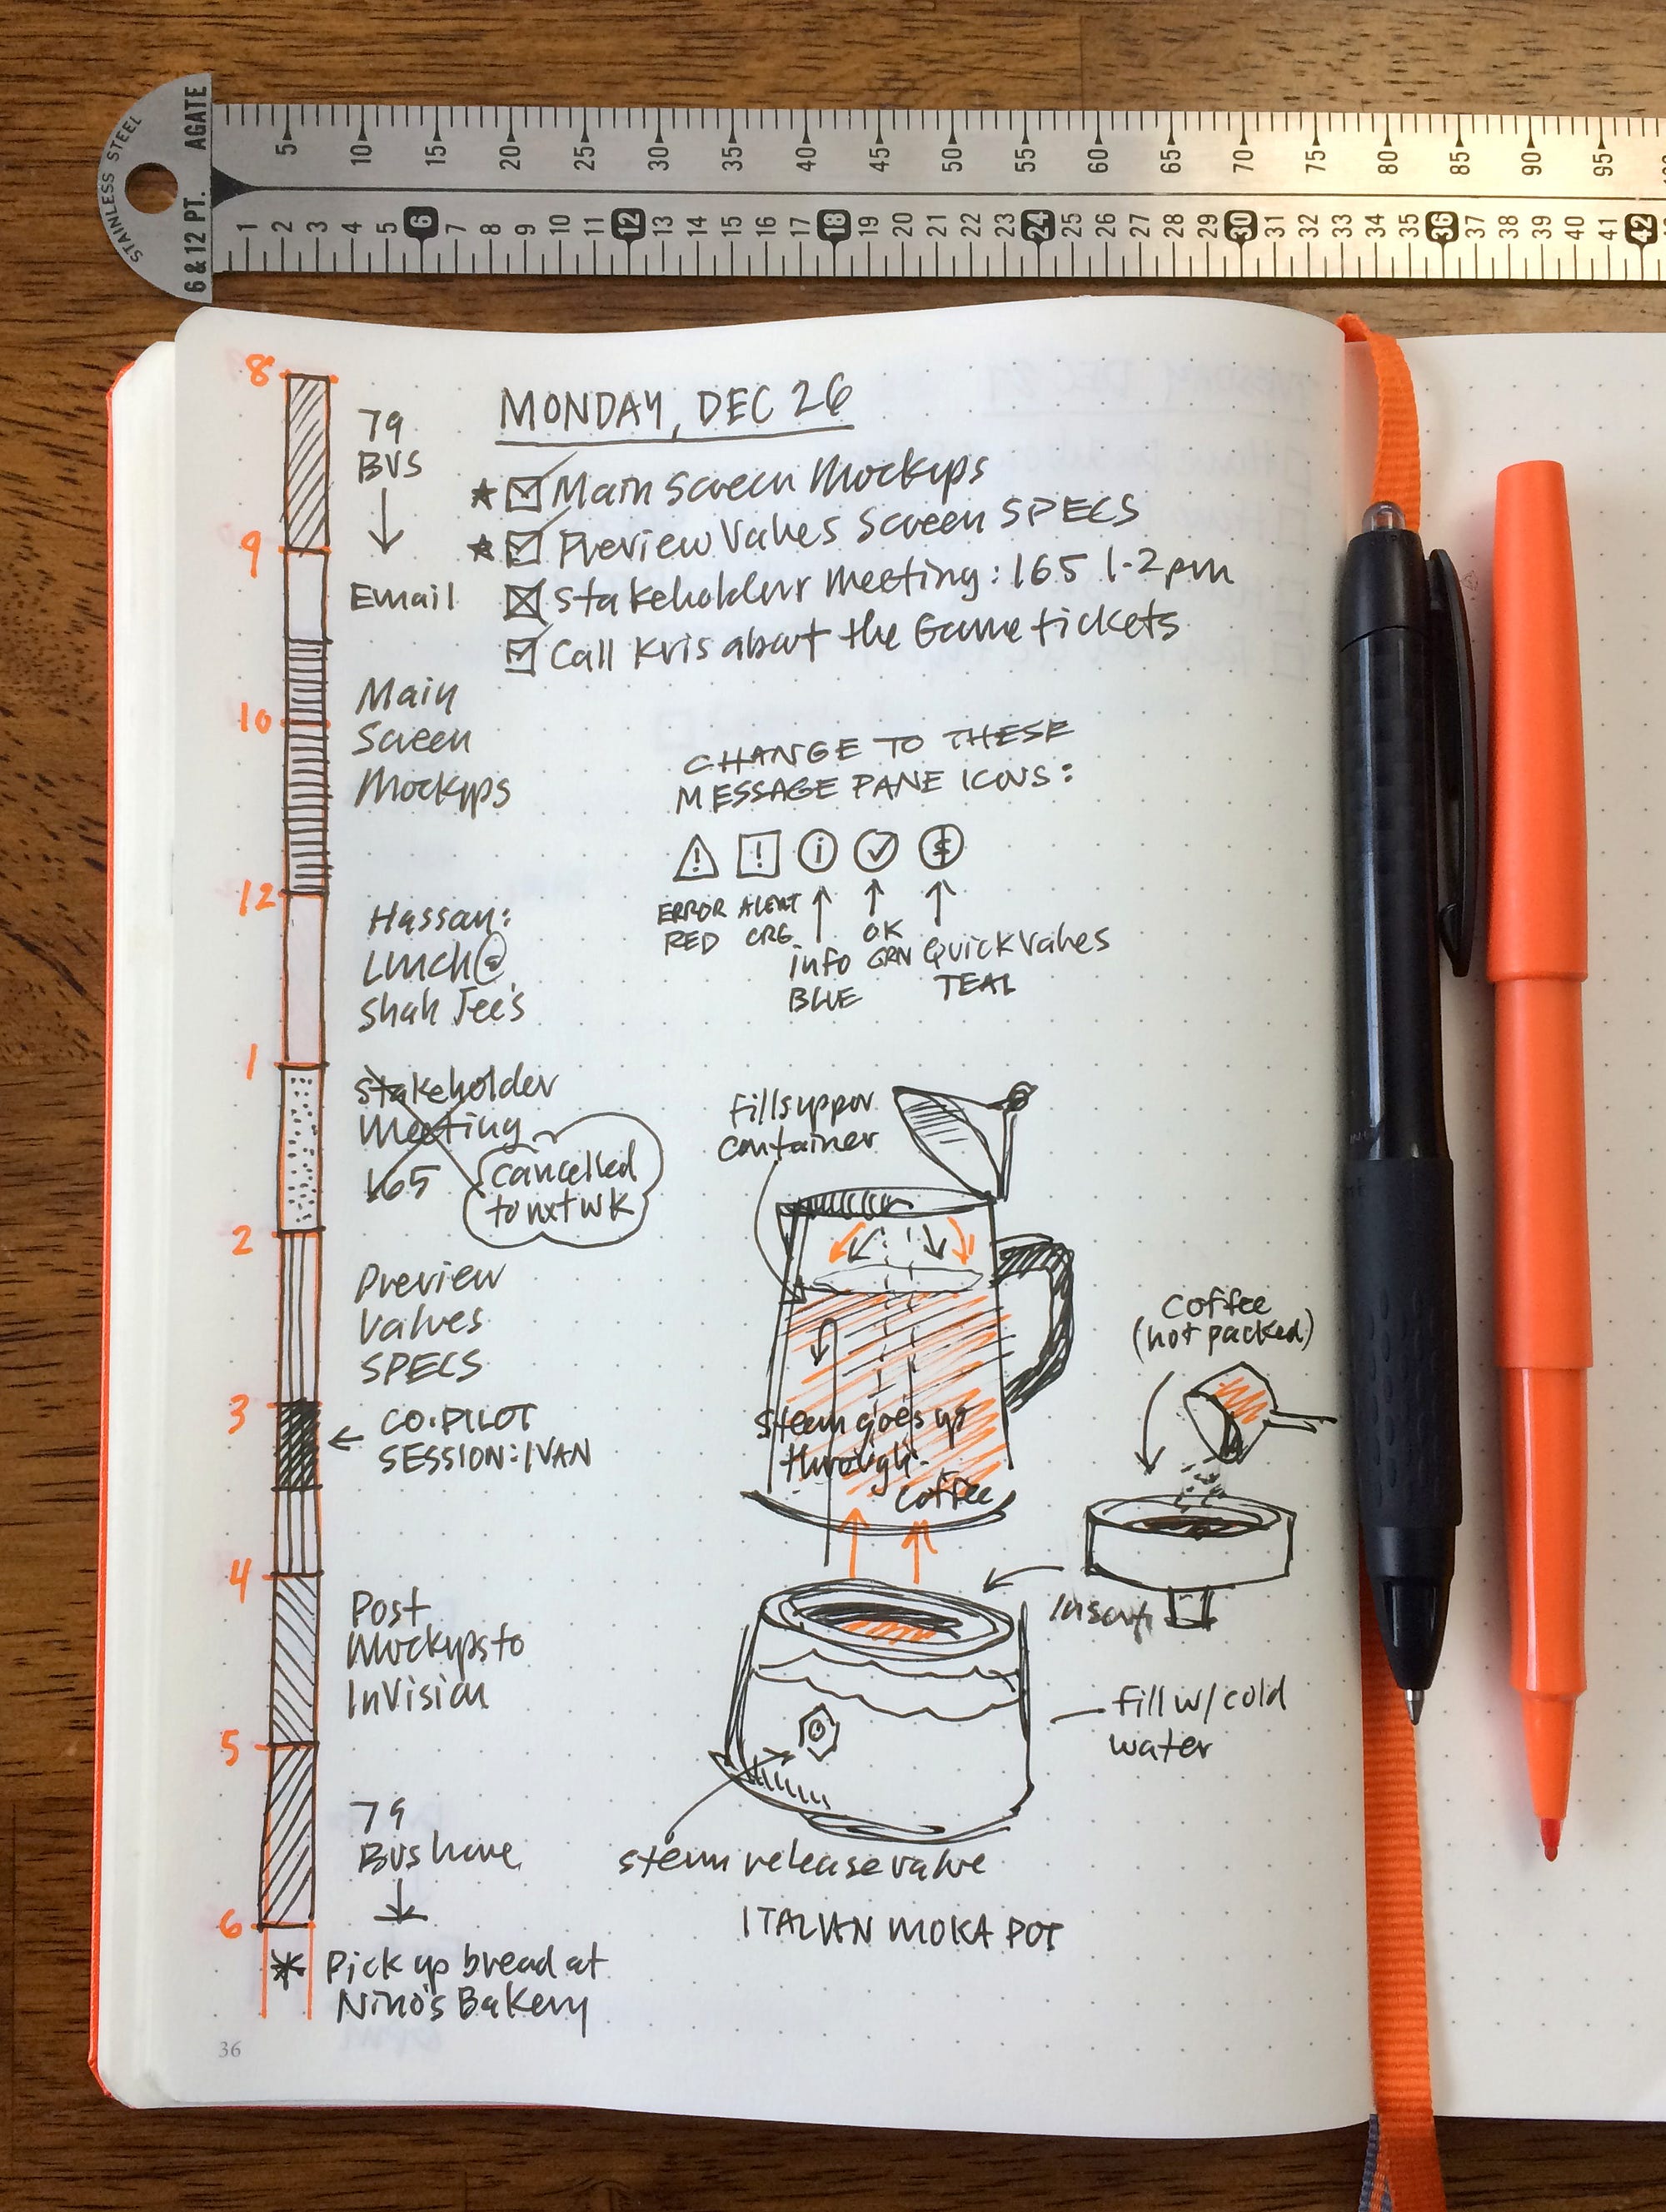 STAINLESS STEEL
AGATE
6 & 12 PT.
5 10 15 20 25 30 35 40 45 50 55 60 65 70 75 80 85 90 95
1 2 3 4 5 6 7 8 9 10 11 12 13 14 15 16 17 18 19 20 21 22 23 24 25 26 27 28 29 30 31 32 33 34 35 36 37 38 39 40 41 42
MONDAY, DEC 26
Main Screen Mockups
Preview Values Screen SPECS
Stakeholder Meeting: 165 1-2pm
Call Kris about the Game tickets
8
79
BUS
9
Email
Main
10
Screen
Mockups
12
Hassan:
Lunch@
Shah Jee's
1
Stakeholder
Meeting
165
cancelled
to nxt wk
2
Preview
Values
SPECS
3
CO-PILOT
SESSION: IVAN
4
Post
Mockups to
InVision
5
79
Bus home
6
* Pick up bread at
Nino's Bakery
36
CHANGE TO THESE
MESSAGE PANE ICONS:
! ! i $
ERROR
RED
ALERT
ORG
info
BLUE
OK
GRN
Quick Values
TEAL
Fills upper
container
Steam goes up
through
coffee
Coffee
(not packed)
Insert
Fill w/ cold
water
steam release valve
ITALIAN MOKA POT